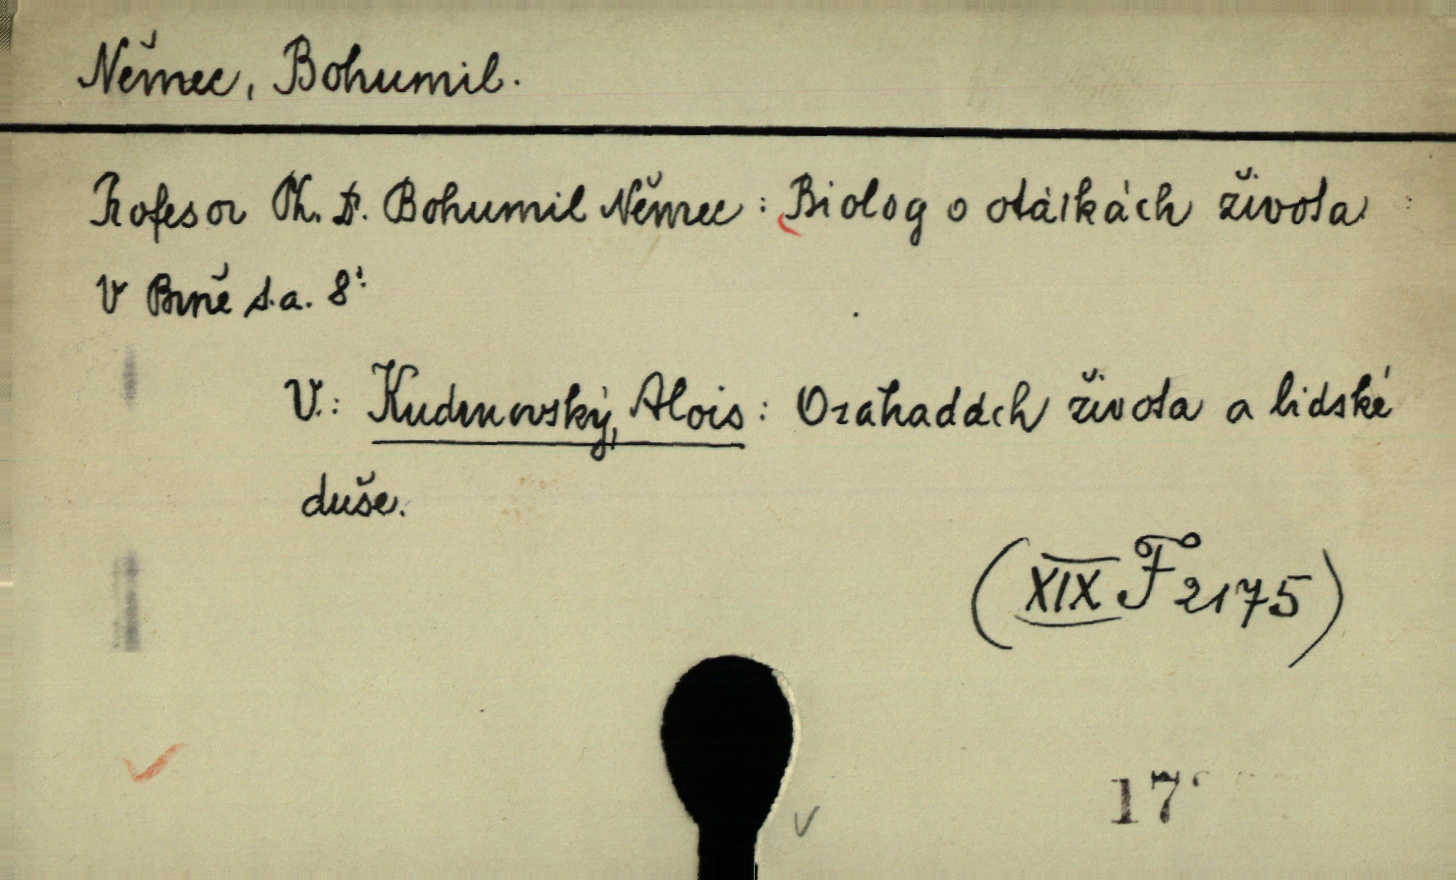 Němec, Bohumil.
Profesor Ph. Dr. Bohumil Němec: Biolog o otázkách života :
V Brně s.a. 8°:
V.: Kudrnovský, Alois: O záhadách života a lidské
duše.
(XIX F 2175)
17